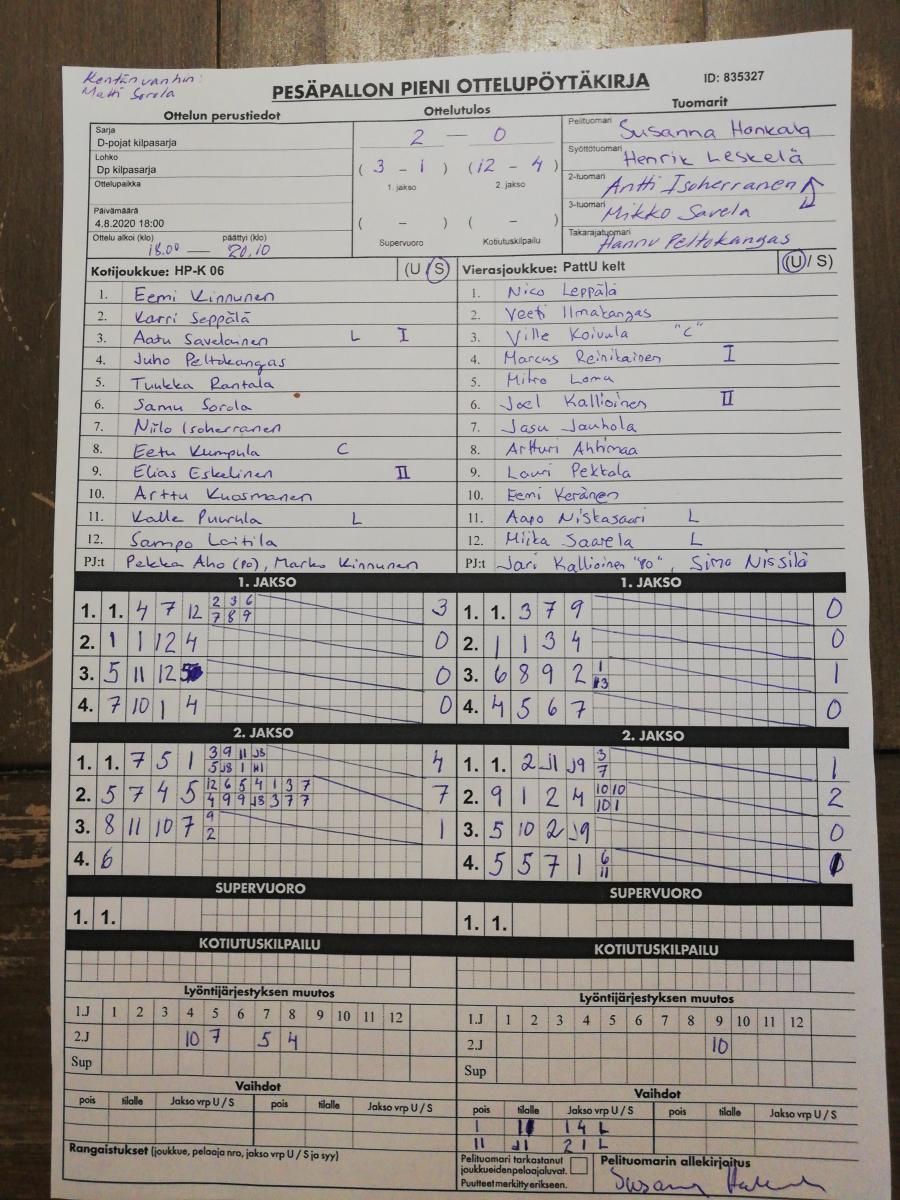 Kentänvanhin:
Matti Sorola
PESÄPALLON PIENI OTTELUPÖYTÄKIRJA
ID: 835327
Ottelun perustiedot
Sarja
D-pojat kilpasarja
Lohko
Dp kilpasarja
Ottelupaikka
Päivämäärä
4.8.2020 18:00
Ottelu alkoi (klo) päättyi (klo)
18.00 — 20.10
Ottelutulos
2 — 0
( 3 - 1 ) ( 12 - 4 )
1. jakso 2. jakso
( - ) ( - )
Supervuoro Kotiutuskilpailu
Tuomarit
Pelituomari Susanna Honkala
Syöttötuomari Henrik Leskelä
2-tuomari Antti Isoherranen
3-tuomari Mikko Savela
Takarajatuomari Hannu Peltokangas
Kotijoukkue: HP-K 06 (U / S)
1. Eemi Kinnunen
2. Karri Seppälä
3. Aatu Savelainen L I
4. Juho Peltokangas
5. Tuukka Rantala
6. Samu Sorola
7. Niilo Isoherranen
8. Eetu Kumpula C
9. Elias Eskelinen II
10. Arttu Kuosmanen
11. Kalle Puurula L
12. Sampo Laitila
PJ:t Pekka Aho (PO), Marko Kinnunen
Vierasjoukkue: PattU kelt (U / S)
1. Nico Leppälä
2. Veeti Ilmakangas
3. Ville Koivula "C"
4. Marcus Reinikainen I
5. Mitro Loma
6. Joel Kallioinen II
7. Jasu Jauhola
8. Artturi Ahtimaa
9. Lauri Pekkala
10. Eemi Keränen
11. Aapo Niskasaari L
12. Miika Saarela L
PJ:t Jari Kallioinen "PO", Simo Nissilä
1. JAKSO
1. 1. 4 7 12 2 3 6 3
7 8 9
2. 1 1 12 4 0
3. 5 11 12 0
4. 7 10 1 4 0
2. JAKSO
1. 1. 7 5 1 3 9 11 J3 4
5 J8 1
2. 5 7 4 5 12 6 5 4 1 3 7 7
4 9 9 J3 3 7 7
3. 8 11 10 7 9 1
2
4. 6
SUPERVUORO
1. 1.
KOTIUTUSKILPAILU
1. JAKSO
1. 1. 3 7 9 0
2. 1 1 3 4 0
3. 6 8 9 2 1 1
3
4. 4 5 6 7 0
2. JAKSO
1. 1. 2 J1 J9 3 1
7
2. 9 1 2 4 10 10 2
10 1
3. 5 10 2 J9 0
4. 5 5 7 1 6
11
SUPERVUORO
1. 1.
KOTIUTUSKILPAILU
Lyöntijärjestyksen muutos
1.J 1 2 3 4 5 6 7 8 9 10 11 12
2.J 10 7 5 4
Sup
Vaihdot
pois tilalle Jakso vrp U / S pois tilalle Jakso vrp U / S
Rangaistukset (joukkue, pelaaja nro, jakso vrp U / S ja syy)
Lyöntijärjestyksen muutos
1.J 1 2 3 4 5 6 7 8 9 10 11 12
2.J 10
Sup
Vaihdot
pois tilalle Jakso vrp U / S pois tilalle Jakso vrp U / S
1 1 4 L
11 J1 2 1 L
Pelituomari tarkastanut
joukkueidenpelaajaluvat.
Puutteet merkitty erikseen.
Pelituomarin allekirjoitus